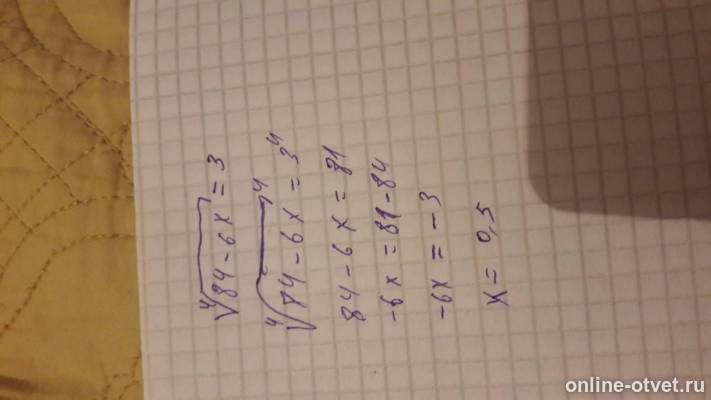 ⁴√84-6x = 3
⁴√84-6x⁴ = 3⁴
84-6x = 81
-6x = 81-84
-6x = -3
x = 0,5
online-otvet.ru